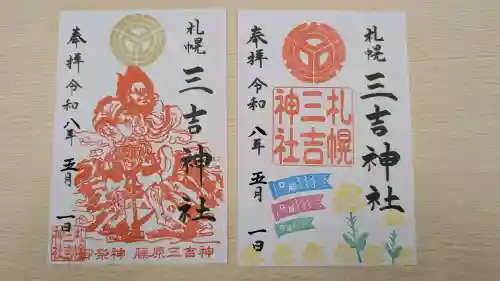 奉拝
札幌
三吉神社
令和八年五月一日
御祭神 藤原三吉神
奉拝
札幌
三吉神社
令和八年五月一日
札幌
三吉
神社